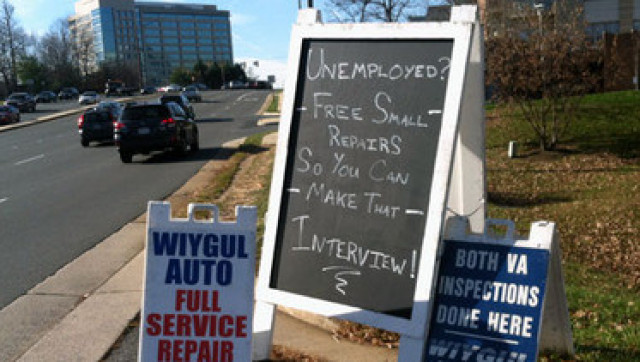 UNEMPLOYED?
FREE SMALL
REPAIRS
SO YOU CAN
MAKE THAT
INTERVIEW!
WIYGUL
AUTO
FULL
SERVICE
REPAIR
BOTH VA
INSPECTIONS
DONE HERE
WIYGUL